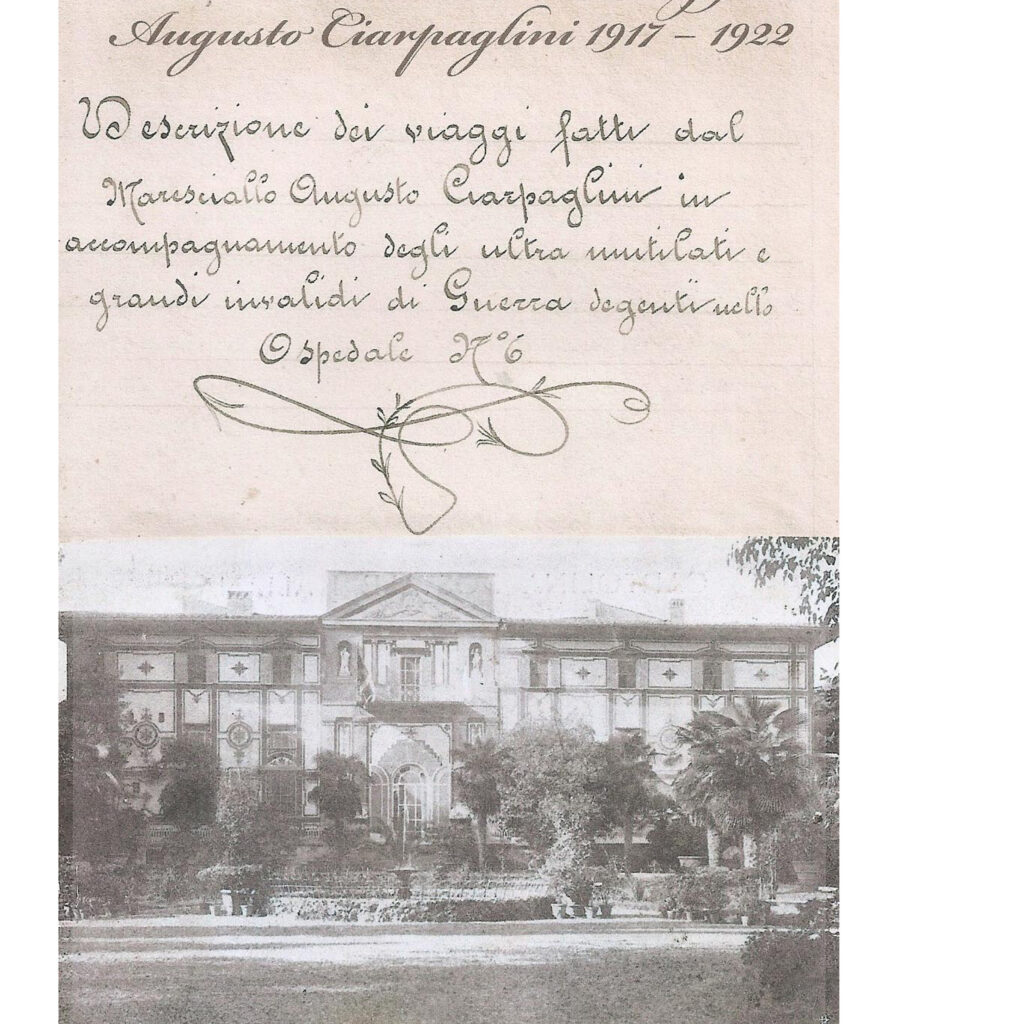 Augusto Ciarpaglini 1917 – 1922
Descrizione dei viaggi fatti dal
Maresciallo Augusto Ciarpaglini in
accompagnamento degli ultra mutilati e
grandi invalidi di Guerra degenti nello
Ospedale N° 6